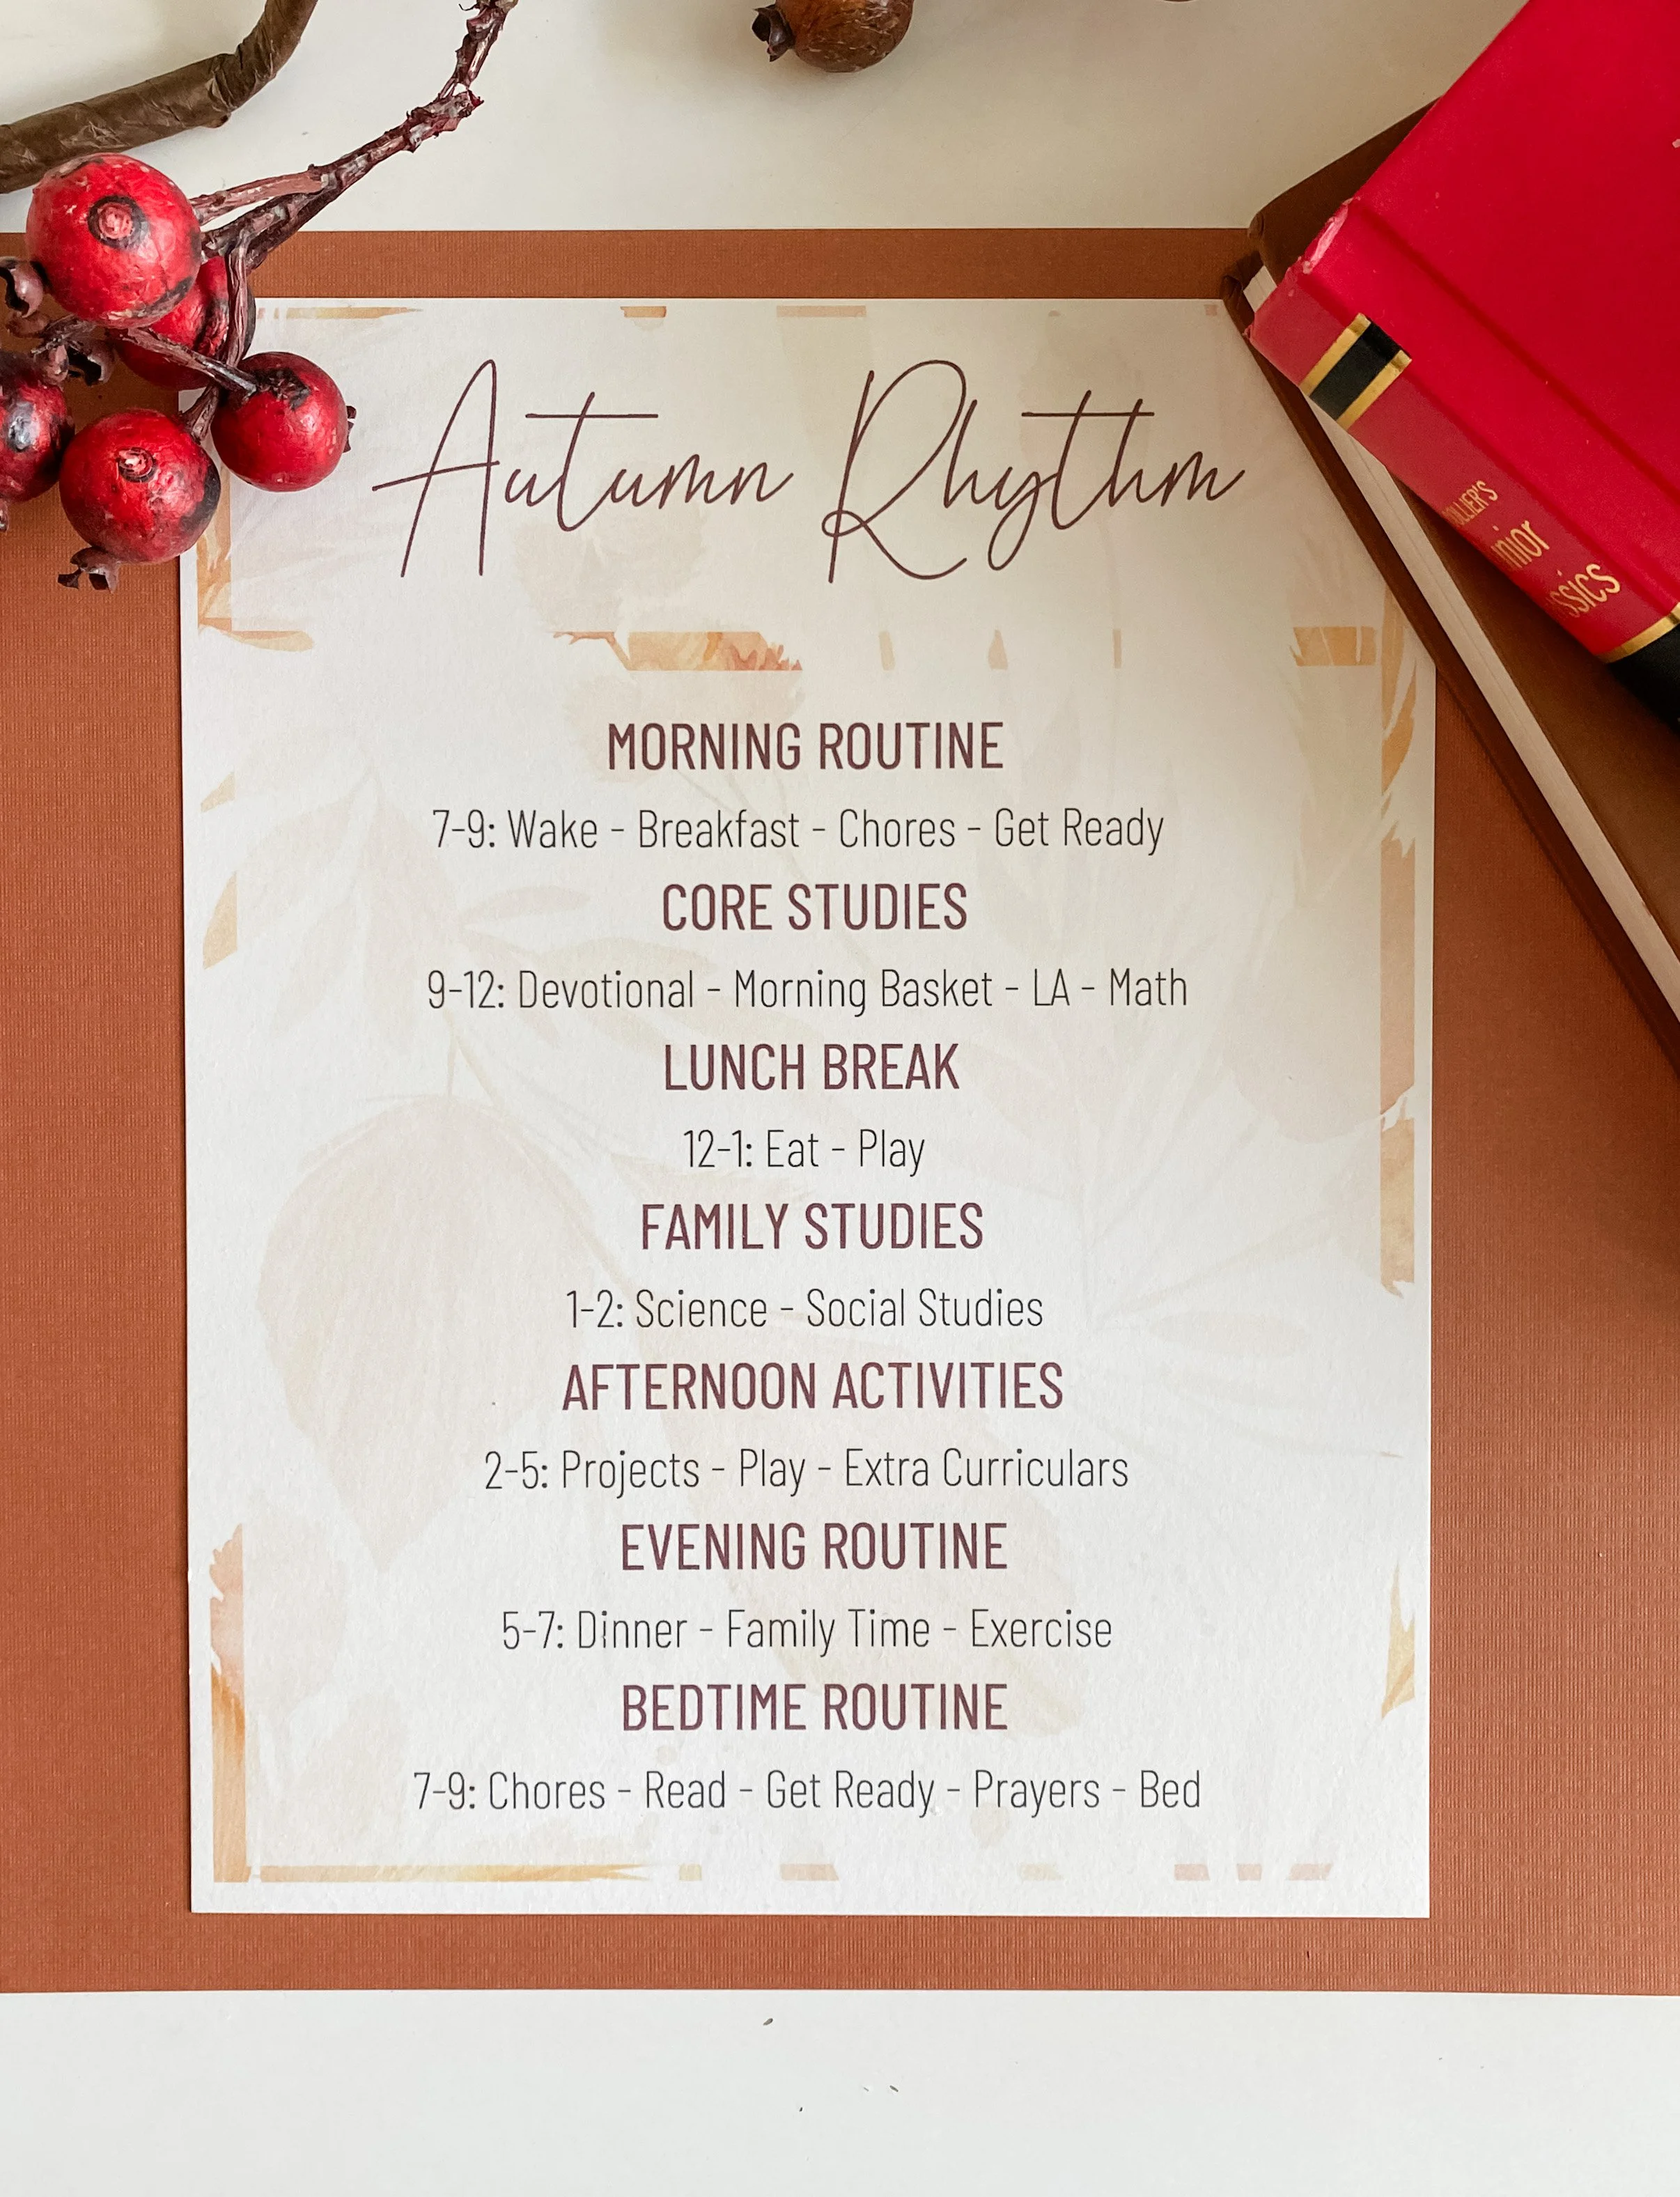 Autumn Rhythm
MORNING ROUTINE
7-9: Wake - Breakfast - Chores - Get Ready
CORE STUDIES
9-12: Devotional - Morning Basket - LA - Math
LUNCH BREAK
12-1: Eat - Play
FAMILY STUDIES
1-2: Science - Social Studies
AFTERNOON ACTIVITIES
2-5: Projects - Play - Extra Curriculars
EVENING ROUTINE
5-7: Dinner - Family Time - Exercise
BEDTIME ROUTINE
7-9: Chores - Read - Get Ready - Prayers - Bed